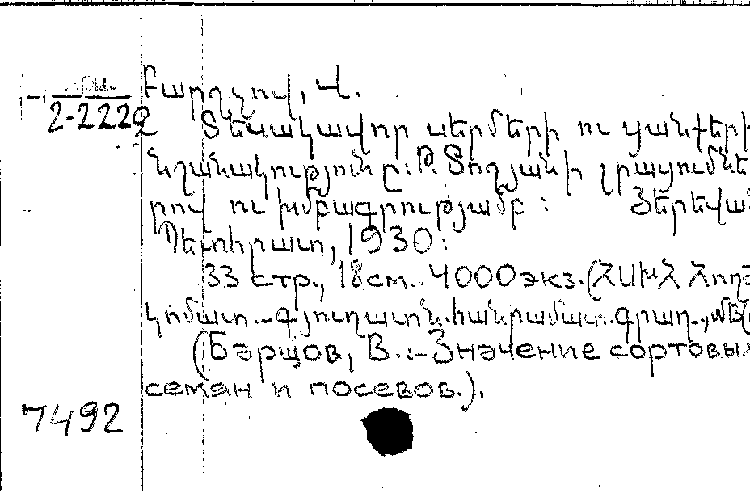 Բարղչով, Վ.
2-2229 Տեսակավոր սերմերի ու ցանքերի
նշանակությունը: Թ. Տողյանի լրացումնե
րով ու խմբագրությամբ: Յերեվան
Պետհրատ, 1930:
33 стр., 18 см. 4000 экз. (ՀՍԽՀ Հողժ
կոմատ.-գյուղատնտ. հանրամատ. գրադ.,
(Барщов, В.:-Значение сортовых
семян и посевов.).
7492